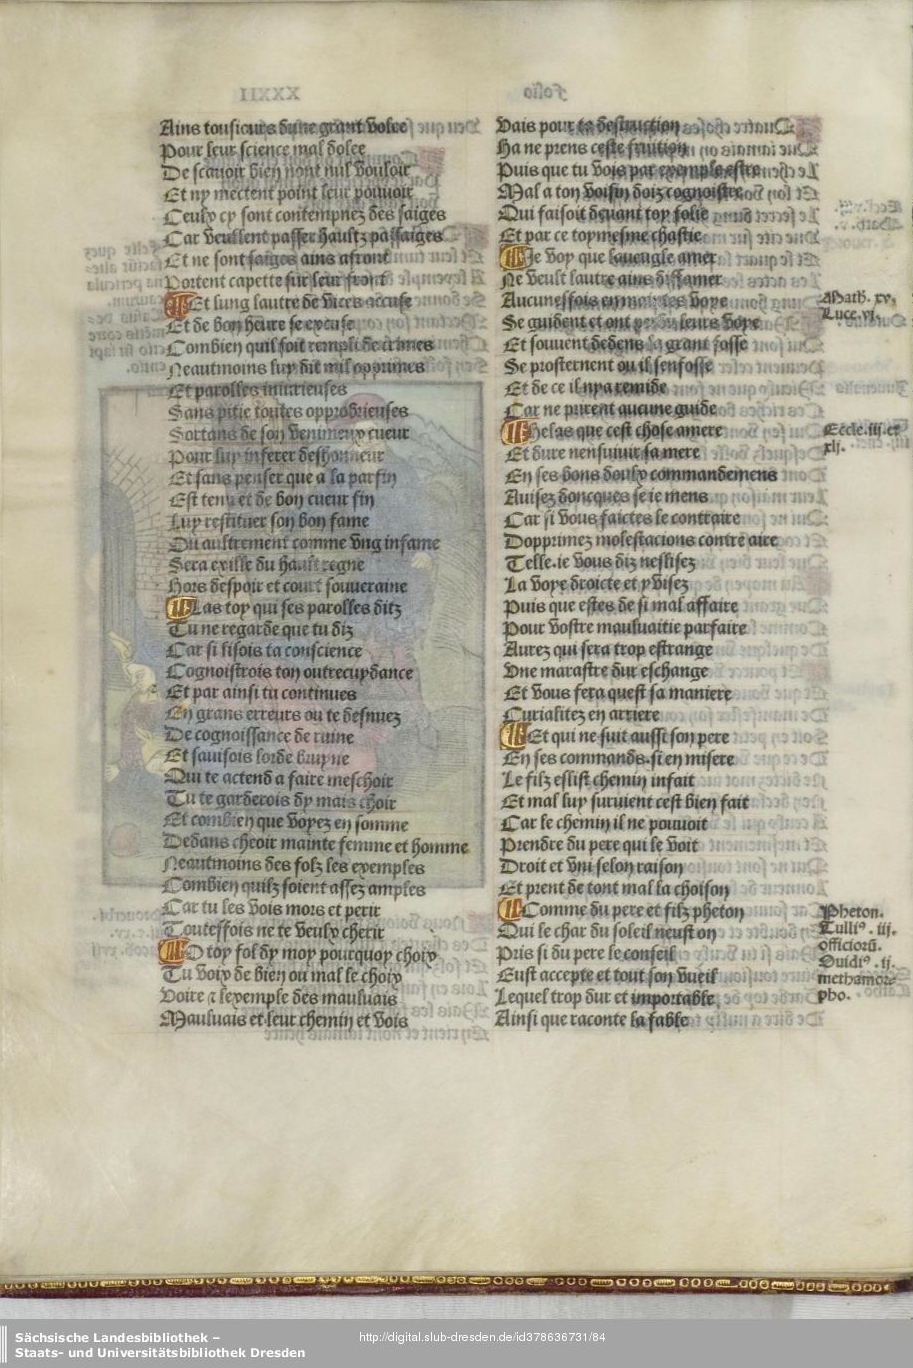 Ains tousiours dune grant volee
Pour leur science mal dolee
De scauoir bien nont nul vouloir
Et ny mectent point leur pouuoir
Ceulx cy sont contempnez des saiges
Car veullent passer haultz passaiges
Et ne sont saiges ains afront
Portent capette sur leur front
Et lung lautre de vices accuse
Et de bon heure se excuse
Combien quil soit rempli de crimes
Neautmoins luy dit mil opprimes
Et parolles iniurieuses
Sans pitie toutes opprobrieuses
Sortans de son venimeux cueur
Pour luy inferer deshonneur
Et sans penser que a la parfin
Est tenu et de bon cueur fin
Luy restituer son bon fame
Ou aultrement comme vng infame
Sera exille du hault regne
Hors despoir et court souueraine
Las toy qui ses parolles ditz
Tu ne regarde que tu diz
Car si lisois ta conscience
Cognoistrois ton outrecuydance
Et par ainsi tu continues
En grans erreurs ou te desnuez
De cognoissance de ruine
Et sauisois lorde bruyne
Qui te actend a faire meschoir
Tu te garderois dy mais choir
Et combien que voyez en somme
Dedans cheoir mainte femme et homme
Neautmoins des folz les exemples
Combien quilz soient assez amples
Car tu les vois mors et perir
Toutessois ne te veulx cherir
O toy fol dy moy pourquoy choix
Tu voix de bien ou mal le choix
Voire ⁊ lexemple des mauluais
Mauluais et leur chemin et vois
Vais pour ta destruction
Ha ne prens ceste fruition
Puis que tu vois par exemple estre
Mal a ton voisin doiz cognoistre
Qui faisoit deuant toy folie
Et par ce toymesme chastie
Je voy que laueugle amer
Ne veult lautre ains diffamer
Aucunessois en les voye
Se guident et ont leurs voye
Et souuent dedens la grant fosse
Se prosternent ou il senfosse
Et de ce il nya remide
Car ne prirent aucune guide
Helas que cest chose amere
Et dure nensuiuir sa mere
En ses bons doulx commandemens
Auisez doncques se ie mens
Car si vous faictes le contraire
Dopprimez molestacions contre aire
Telle.ie vous diz neslisez
La voye droicte et y visez
Puis que estes de si mal affaire
Pour vostre mauluaitie parfaire
Aurez qui sera trop estrange
Vne marastre dur eschange
Et vous fera quest sa maniere
Curialitez en arriere
Et qui ne suit aussi son pere
En ses commands.si en misere
Le filz eslist chemin infait
Et mal luy suruient cest bien fait
Car le chemin il ne pouuoit
Prendre du pere qui le voit
Droit et vni selon raison
Et prent de tont mal la choison
Comme du pere et filz pheton
Qui le char du soleil neust on
Pris si du pere le conseil
Eust accepte et tout son vueil
Lequel trop dur et importable
Ainsi que raconte la fable
Math. xv.
Luce.vi.
Eccle.iii.et
xlj.
Pheton.
Tulliꝰ. iij.
officiorū.
Ouidiꝰ. ij.
methamor-
pho.
Sächsische Landesbibliothek –
Staats- und Universitätsbibliothek Dresden
http://digital.slub-dresden.de/id378636731/84